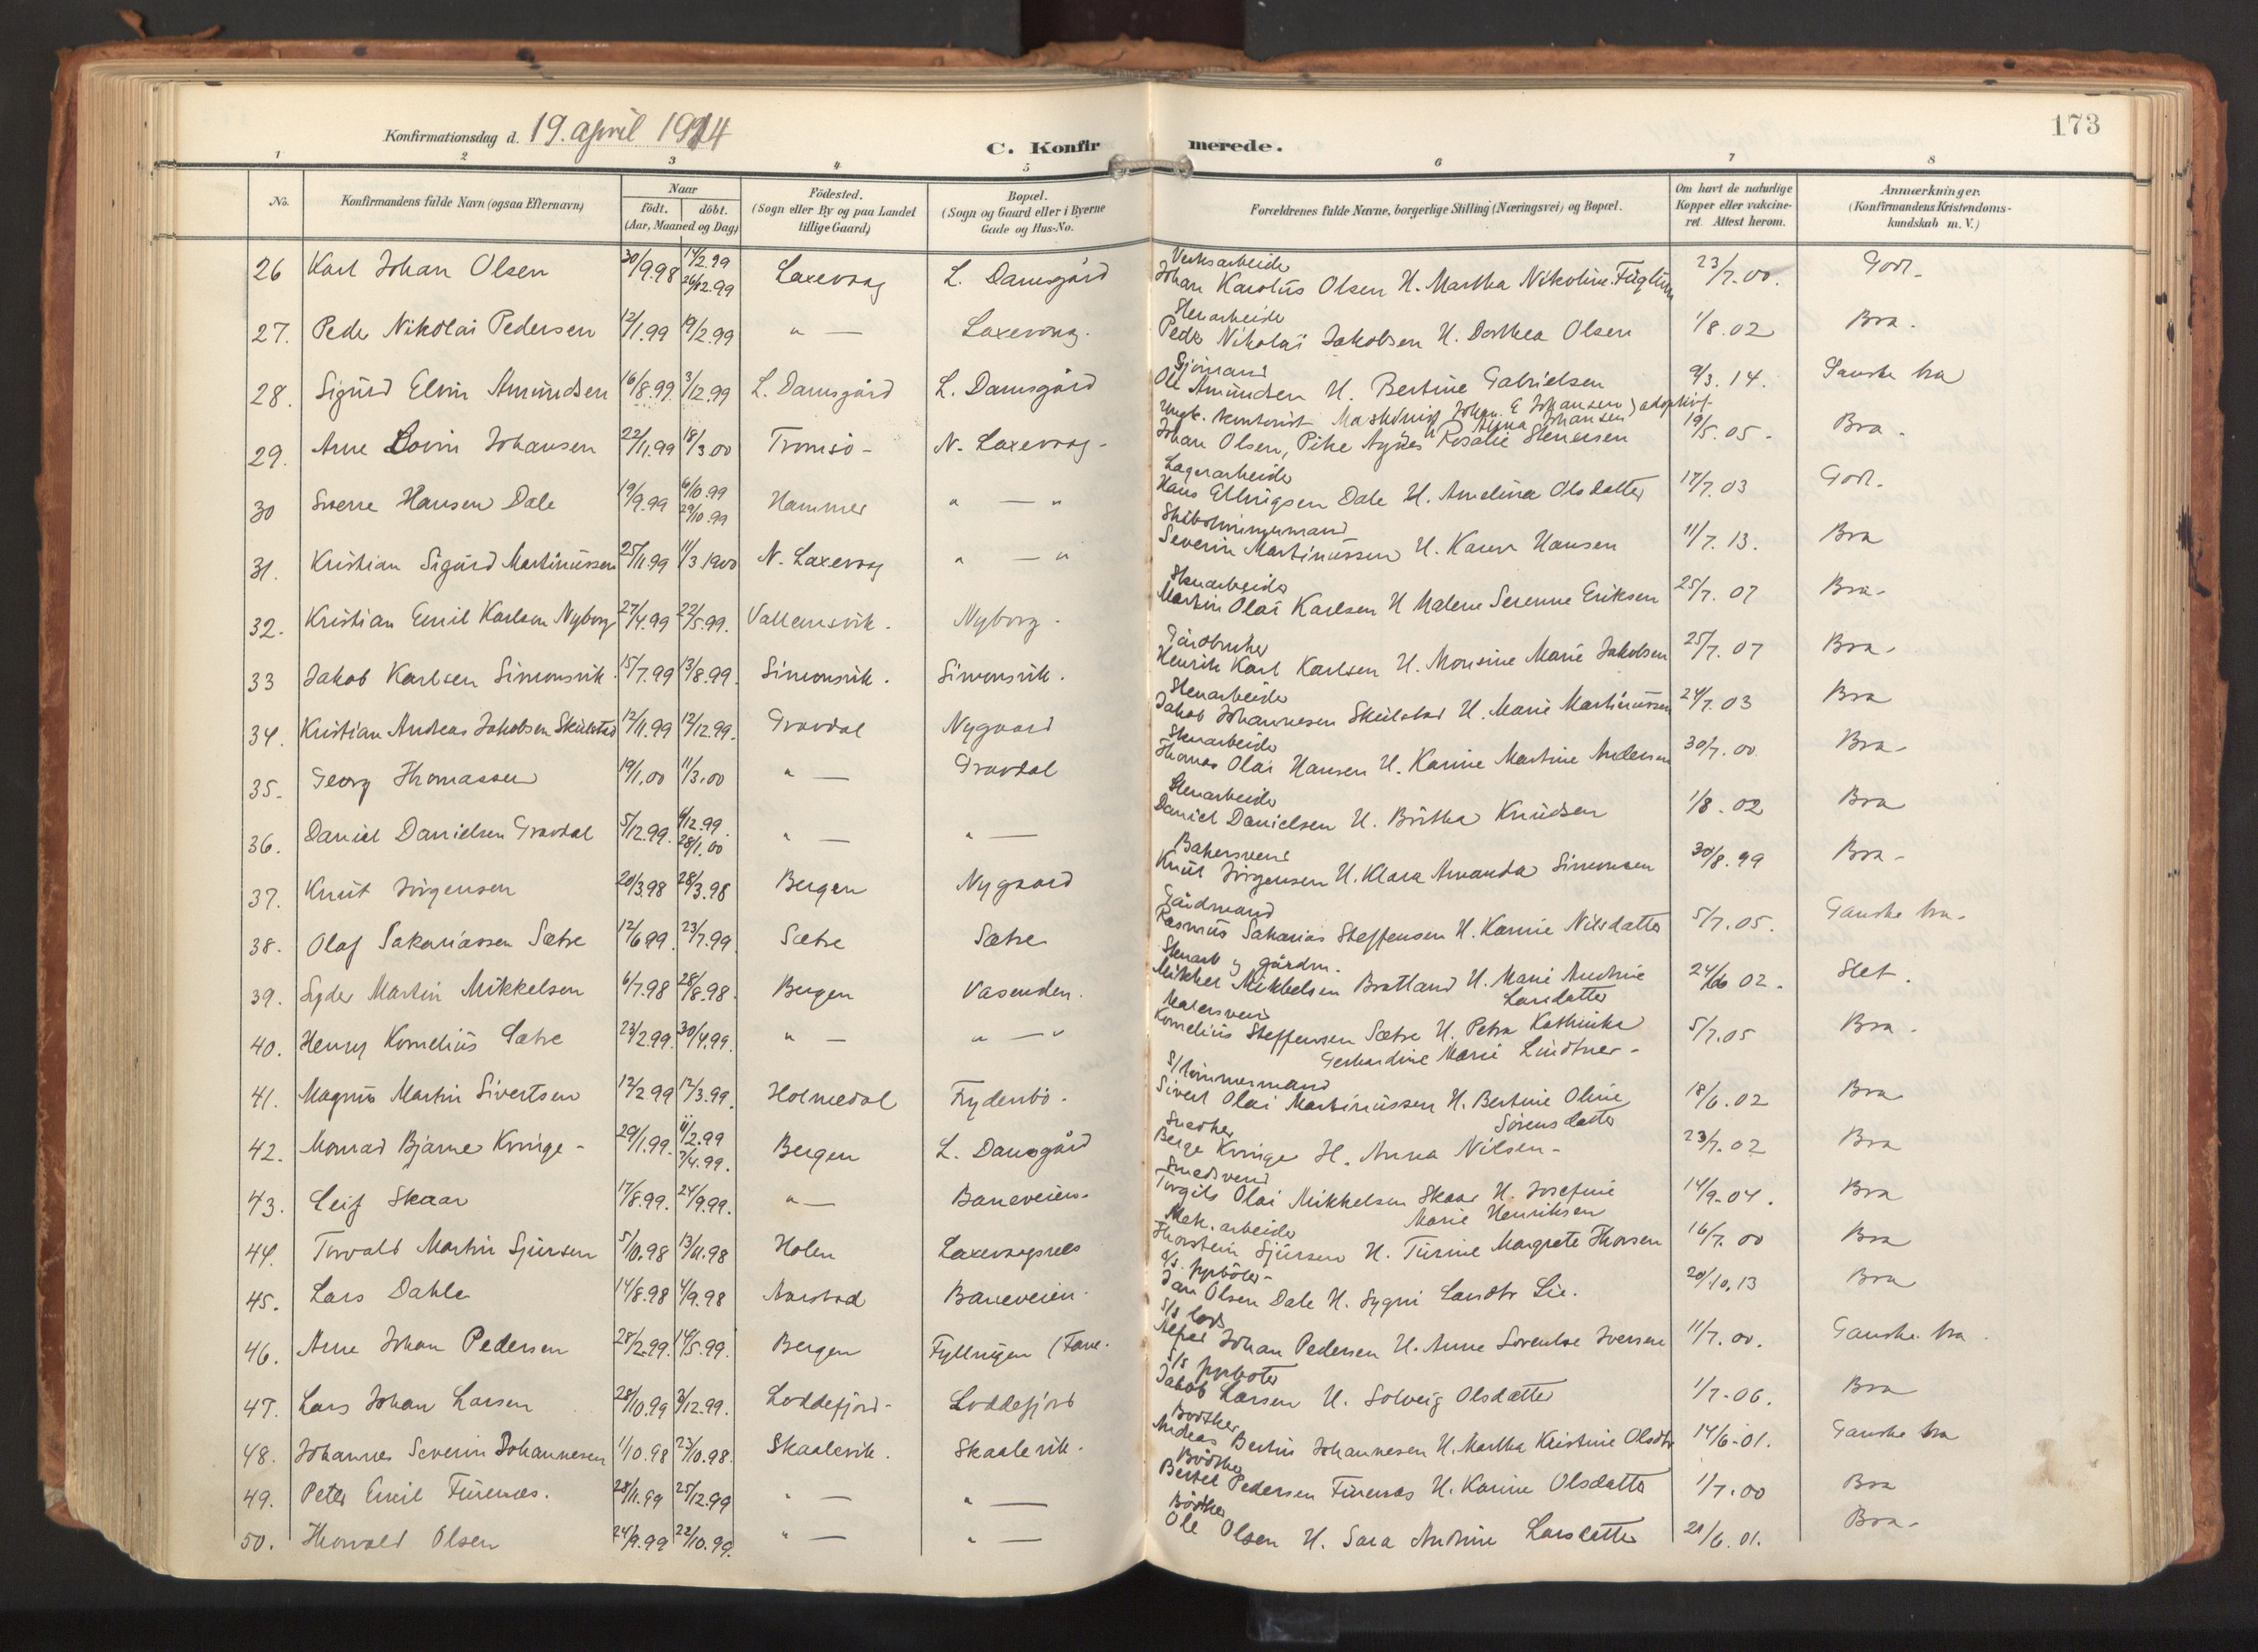 173
Konfirmationsdag d. 19. april 1914
C. Konfirmerede.
1 2 3 4 5 6 7 8
No. Konfirmandens fulde Navn (ogsaa Efternavn) Naar födt. döbt. (Aar, Maaned og Dag) Födested. (Sogn eller By og paa Landet tillige Gaard) Bopæl. (Sogn og Gaard eller i Byerne Gade og Hus-No. Forældrenes fulde Navne, borgerlige Stilling (Næringsvei) og Bopæl. Om havt de naturlige Kopper eller vakcineret. Attest herom. Anmærkninger. (Konfirmandens Kristendomskundskab m. V.)
Verksarbeider
26 Karl Johan Olsen 30/9.98 14/2.99 26/12.99 Laxevaag L. Damsgård Johan Karolus Olsen H. Martha Nikoline Fuglum 23/7.00. God.
Stenarbeider
27. Peder Nikolai Pedersen 12/1.99 19/2.99 " — Laxevaag. Peder Nikolai Jakobsen H. Dorthea Olsen 1/8.02 Bra.
Sjömand
28. Sigurd Elvin Amundsen 16/8.99 3/12.99 L. Damsgård L. Damsgård Ole Amundsen H. Bertine Gabrielsen 9/3.14. Ganske bra
Ungk. kontorist Maskinist Johan E Johansen Anna Johansen } adoptivf.
29. Arne Lovin Johansen 22/11.99 18/3 00 Tromsö - N. Laxevaag - Johan Olsen, Pike Agnes Rosalie Stenersen 19/5.05 - Bra -
Lagerarbeider
30 Sverre Hansen Dale 19/9.99 6/10.99 29/10.99 Hammer " — " Hans Ellingsen Dale H. Amelina Olsdatter 17/7.03 God.
Skibstömmermand
31. Kristian Sigurd Martinussen 25/11.99 11/3 1900 N. Laxevaag " — " Severin Martinussen H. Karen Hansen 11/7.13. Bra
Stenarbeider
32. Kristian Emil Karlsen Nyborg 27/4.99 22/5.99. Vallemsvik. Nyborg. Martin Olai Karlsen H Malene Serenne Eriksen 25/7.07 Bra.
Gårdbruker
33 Jakob Karlsen Simonsvik. 15/7.99 13/8.99. Simonsvik. Simonsvik. Henrik Karl Karlsen H. Monsine Marie Jakobsen 25/7.07 Bra.
Stenarbeider
34. Kristian Andreas Jakobsen Skulstad 12/11.99 12/12.99. Gravdal Nygaard Jakob Johannesen Skulstad H. Marie Martinussen 24/7.03 Bra
Stenarbeider
35. Georg Thomassen 19/1.00 11/3.00 " — Gravdal Thomas Olai Hansen H. Karine Martine Andersen 30/7.00 Bra-
Stenarbeider
36. Daniel Danielsen Gravdal 5/12.99. 6/12.99. 28/1.00 " — " — Daniel Danielsen H. Britha Knudsen 1/8.02 Bra
Bakersvend
37. Knut Jörgensen 20/3.98 28/3.98 Bergen Nygaard Knut Jörgensen H. Klara Amanda Simonsen 30/8.99 Bra -
Gårdmand
38. Olaf Sakariassen Sætre 12/6.99. 23/7.99. Sætre Sætre Rasmus Sakarias Steffensen H. Karine Nilsdatter 5/7.05. Ganske bra-
Stenarb. og gårdm.
39. Syder Martin Mikkelsen 6/7.98 28/8.98. Bergen Vasenden. Mikkel Mikkelsen Bratland H. Marie Andrine Larsdatter 24/6 02. Slet.
Malersvend
40. Henry Kornelius Sætre 23/2.99. 30/4.99. " — " — " Kornelius Steffensen Sætre H. Petra Kathinka Gerhardine Marie Lindtner- 5/7.05 Bra.
S/tömmermand
41. Magnus Martin Sivertsen 12/2.99 12/3.99. Holmedal Frydenbö. Sivert Olai Martinussen H. Bertine Oline Sörensdatter 18/6.02 Bra
Snedker
42. Monrad Bjarne Kvinge - 29/1.99. 11/2.99 3/4.99. Bergen L. Damsgård Berge Kvinge H. Anna Nilsen- 23/7.02 Bra
Smedsvend
43. Leif Skaar 17/8.99. 24/9.99. " — Baneveien. Torgils Olai Mikkelsen Skaar H. Josefine Marie Henriksen 14/9.04. Bra
Mek. arbeider
44. Torvald Martin Sjursen 5/10.98 13/11.98 Holen Laxevaagnes Thorstein Sjursen H. Turine Margrete Thorsen 16/7.00 Bra
S/s. fyrböter-
45. Lars Dahle 14/8.98 4/9.98 Aarstad Baneveien. Jan Olsen Dale H. Sygni Larsdtr Lie. 20/10.13 Bra
S/s lods
46. Arne Johan Pedersen 28/2.99. 14/5.99. Bergen Fyllingen (Fane. Alfred Johan Pedersen H. Anne Lorentse Iversen 11/7.00. Ganske bra.
S/s fyrböter
47. Lars Johan Larsen 28/10.99 3/12.99. Loddefjord- Loddefjord Jakob Larsen H. Solveig Olsdatter 1/7-06. Bra
Bödker
48. Johannes Severin Johannesen 1/10.98 23/10.98. Skaalevik. Skaalevik. Andreas Bertin Johannesen H. Martha Kristine Olsdtr 14/6-01. Ganske bra
Bödker
49. Peter Emil Furenæs. 28/11.99 25/12.99 " — " — Bertel Pedersen Furenæs H. Karine Olsdatter 1/7.00 Bra
Bödker
50. Thorvald Olsen 24/9.99 22/10.99. " — " — Ole Olsen H. Sara Andrine Larsdatter 21/6.01. Bra-